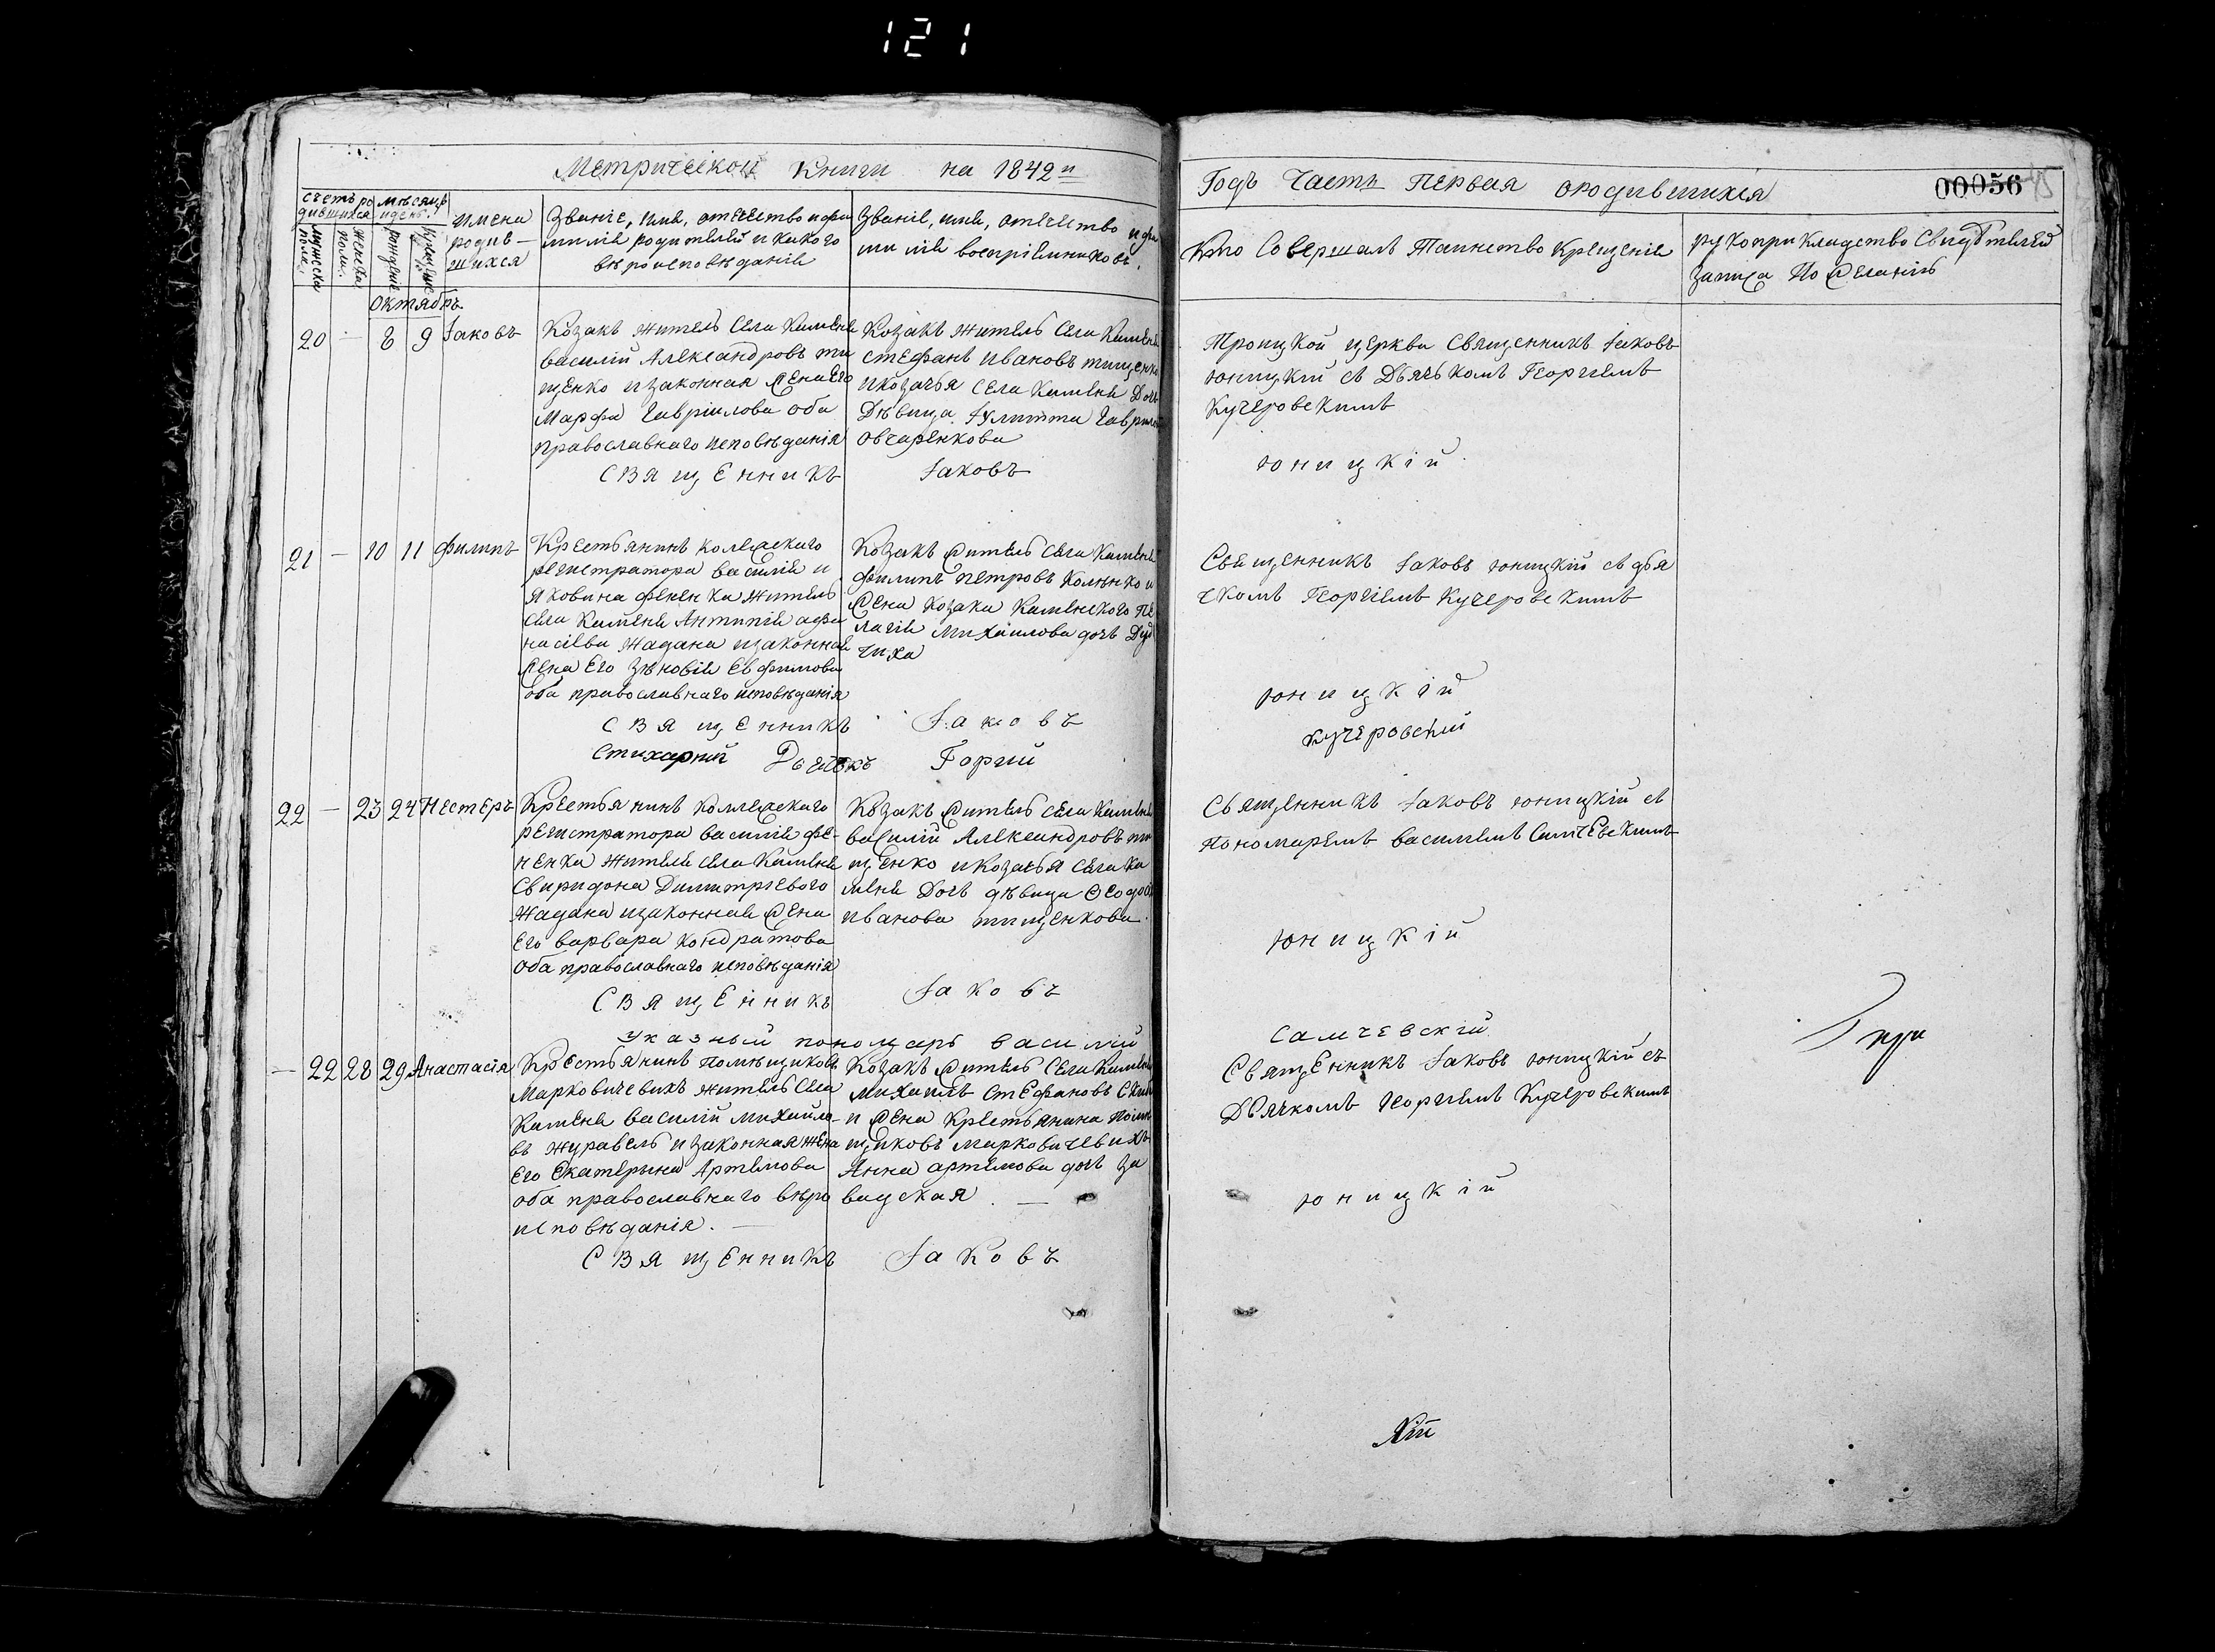 121
Метрической Книги на 1842й
Годъ Часть Первая ородившихся
00056
счетъ ро
дившихся
мѣсяцъ
иденъ.
мужеска
пола.
женска
пола.
рожденіе
крещеніе
имена
родив-
шихся
Званіе, имя, отечество ифа
миліе родителей и какого
вѣроисповѣданія
Званіе, имя, отечество ифа
миліе воспріемниковъ.
Кто Совершалъ Таинство Крещенія
рукоприкладство Свидѣтелей
записа По желанію
Октябрь.
20 — 8 9 Іаковъ
Козакъ житель Села Каменя
василій Александровъ ти
щенко изаконная жена его
Марфа Гавріилова оба
православнаго исповѣданія
Козакъ житель Села Каменя
стефанъ ивановъ тищенко
икозачья Села Каменя Дочъ
Дѣвица Іулитта
Овчаренкова
Троицкой церкви Священникъ Іаковъ
юницкій съ Дьячькомъ Георгіемъ
Кучеровскимъ
Священникъ Іаковъ юницкій
21 — 10 11 филипъ
Крестьянинъ колежского
регистратора василія и
Яковина фененка житель
села Каменя Антипій афа
насіева Жадана изаконная
жена Его Зѣновія Евфимова
оба православнаго исповѣданія
Козакъ житель села Каменя
филипъ петровъ Коленко и
жена козака Каменского Пе
лагія Михаилова дочь Дуд
чиха
Священникъ Іаковъ юницкій съ дья
чкомъ Георгіемъ Кучеровскимъ
Священникъ Іаковъ юницкій
Стихарній Дьячокъ Горгій Кучеровскій
22 — 23 24 Нестеръ
Крестьянинъ Коллежского
регистратора василія фе-
ненка житель села Каменя
Свиридона Димитріевого
Жадана изаконная жена
Его варвара кондратова
оба православнаго исповѣданія
Козакъ житель села Каменя
василій Александровъ ти
щенко икозачья села Ка
меня Дочь дѣвица Ѳеодосія
иванова тищенкова.
Священникъ Іаковъ юницкій съ
пономаремъ василіемъ Самчевскимъ
Священникъ Іаковъ юницкій
Указный пономарь василій Самчевскій
— 22 28 29 Анастасія
Крестьянинъ Помѣщиковъ
Марковичевихъ житель села
Каменя василій михайло-
въ журавель изаконная жена
Его Екатерына Артемова
оба православнаго вѣро
исповѣданія. —
Козакъ житель Села Каменя
михаилъ Стефановъ
и жена Крестьянина помѣ
щиковъ марковичевихъ
Анна артемова дочь за
вадская. —
Священникъ Іаковъ юницкій съ
Дьячкомъ Георгіемъ Кучеровскимъ
Священникъ Іаковъ юницкій